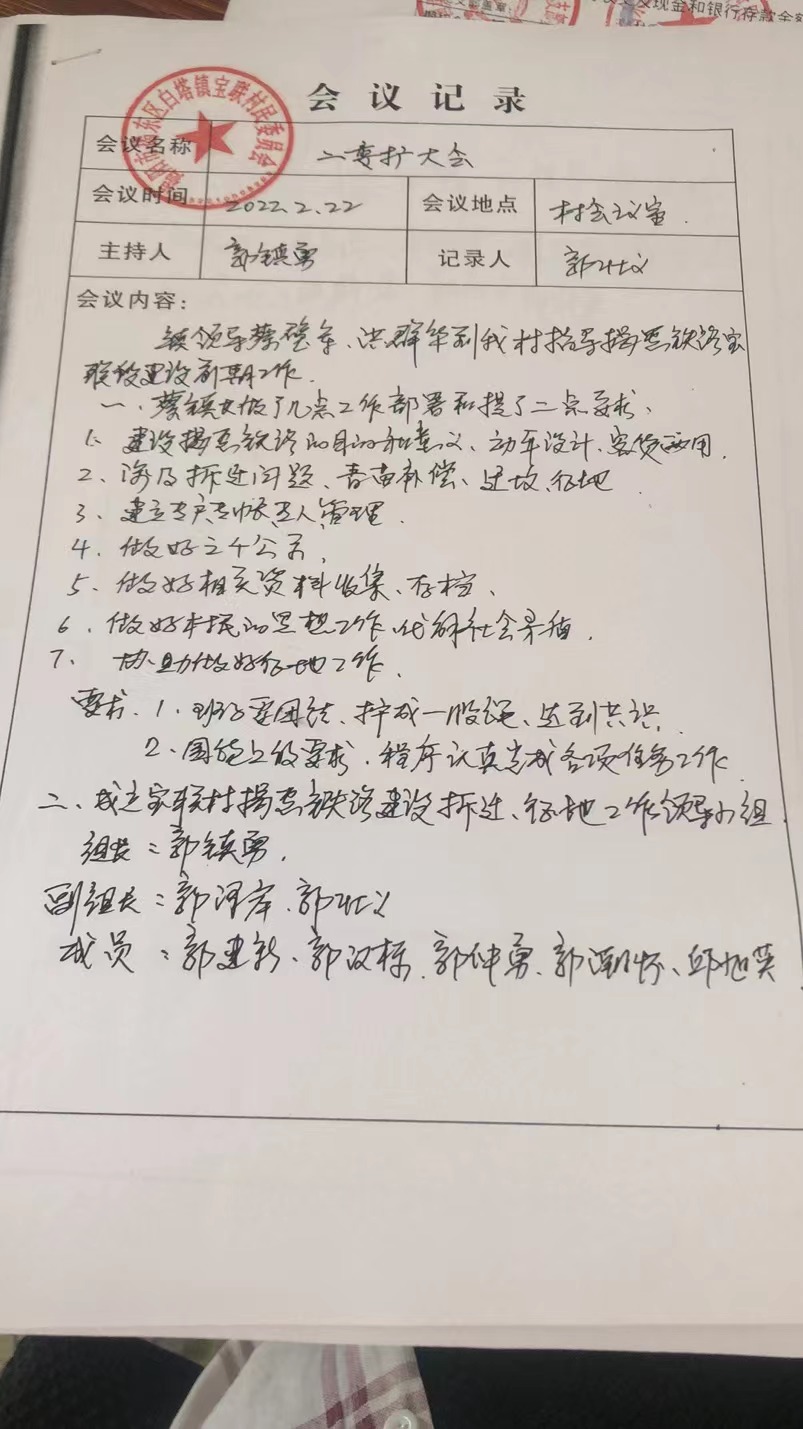 发现金和银行存款金额
会议记录
揭阳市揭东区白塔镇宝联村民委员会
会议名称 二委扩大会
会议时间 2022.2.22 会议地点 村会议室.
主持人 郭镇勇 记录人 郭壮义
会议内容:
镇领导蔡 、洪群华到我村指导揭惠铁路宝
联段建设前期工作.
一、蔡镇 做了几点工作部署和提了二点要求、
1、建设揭惠铁路的目的和意义、动车设计、客货两用.
2、涉及拆迁问题、青苗补偿、迁坟、征地
3、建立专户、专帐、专人管理.
4、做好三个公示,
5、做好相关资料收集、存档、
6、做好村民的思想工作、 社会矛盾.
7、协助做好征地工作.
要求.1、班子要团结、拧成一股绳、达到共识.
2、围绕上级要求.程序认真完成各项任务工作.
二、成立宝联村揭惠铁路建设拆迁、征地工作领导小组.
组长:郭镇勇.
副组长:郭泽 .郭壮义
成员:郭建新、郭汉 .郭仲勇、郭潮怀、邱旭英